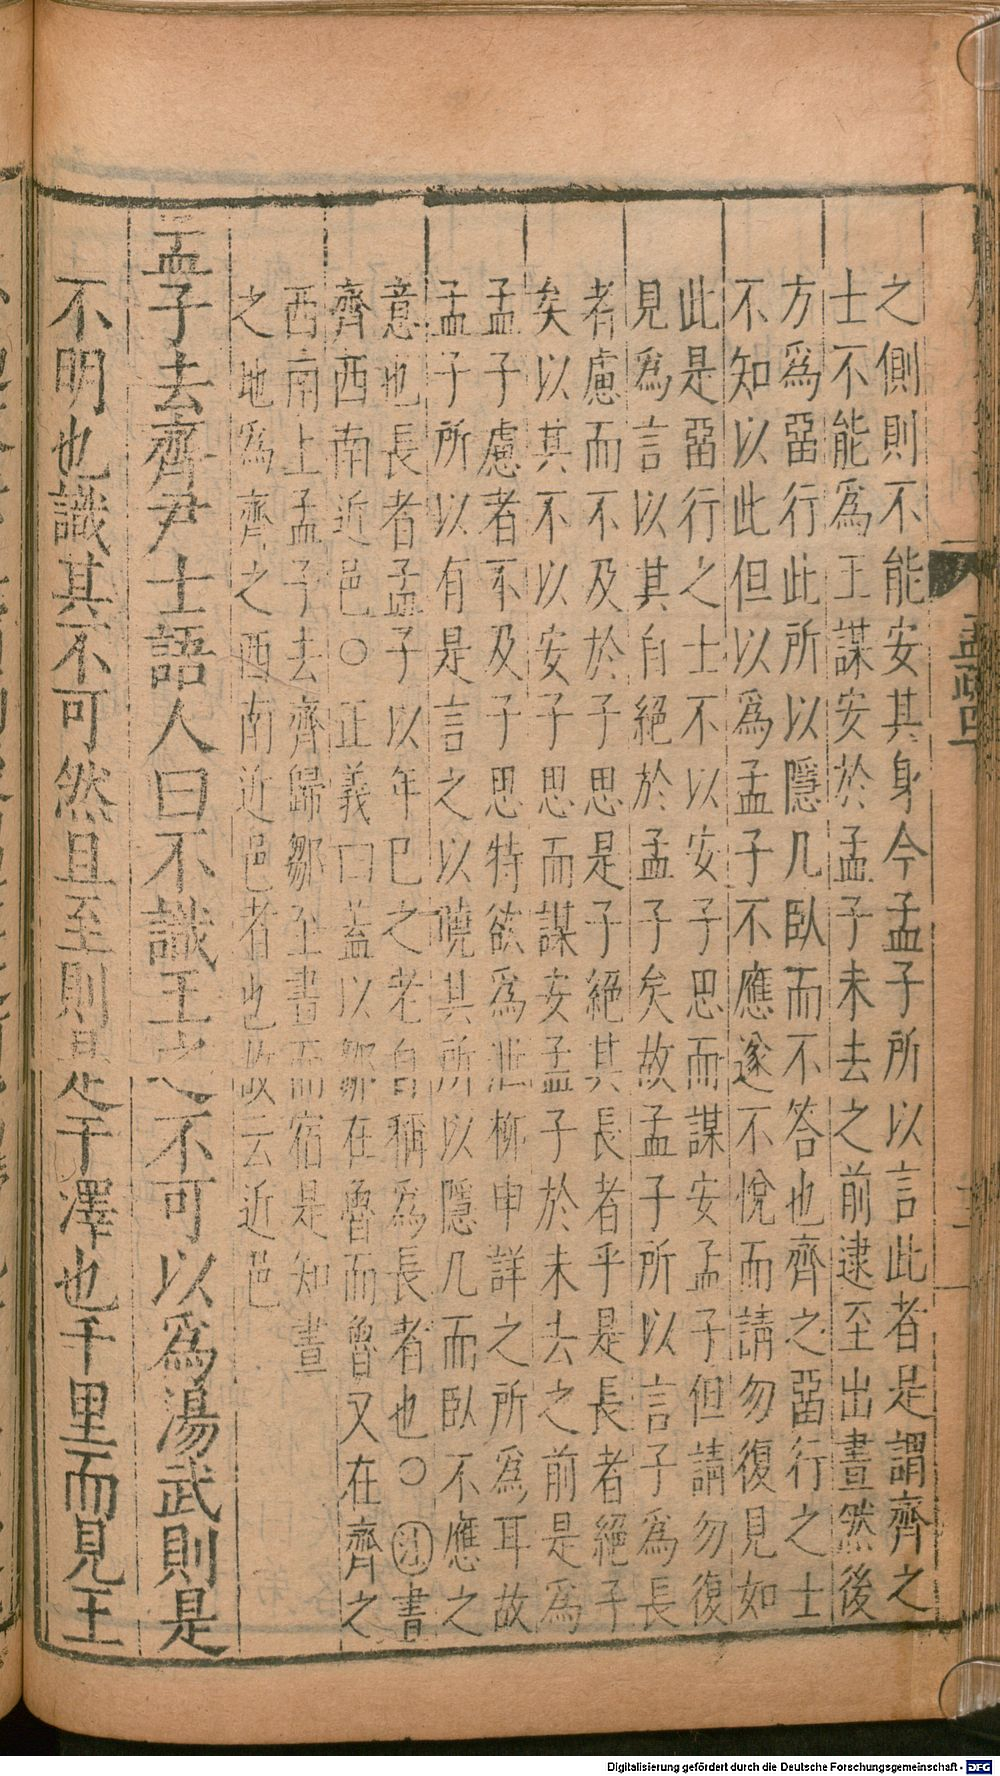 之側則不能安其身今孟子所以言此者是謂齊之
士不能爲王謀安於孟子未去之前逮至出晝然後
方爲惡行此所以隱几臥而不答也齊之惡行之士
不知以此但以爲孟子不應遂不悅而請勿復見如
此是惡行之士不以安子思而謀安孟子但請勿復
見爲言以其自絕於孟子矣故孟子所以言子爲長
者慮而不及於子思是子絕其長者乎是長者絕子
矣以其不以安子思而謀安孟子於未去之前是爲
孟子慮者不及子思特欲爲泄柳申詳之所爲耳故
孟子所以有是言之以曉其所以隱几而臥不應之
意也長者孟子以年已之老自稱爲長者也○注晝
齊西南近邑○正義曰蓋以鄒在魯而魯又在齊之
西南上孟子去齊歸鄒至晝而宿是知晝
之地爲齊之西南近邑者也故云近邑
孟子去齊尹士語人曰不識王之不可以爲湯武則是
不明也識其不可然且至則是干澤也千里而見王
孟疏四
Digitalisierung gefördert durch die Deutsche Forschungsgemeinschaft - DFG